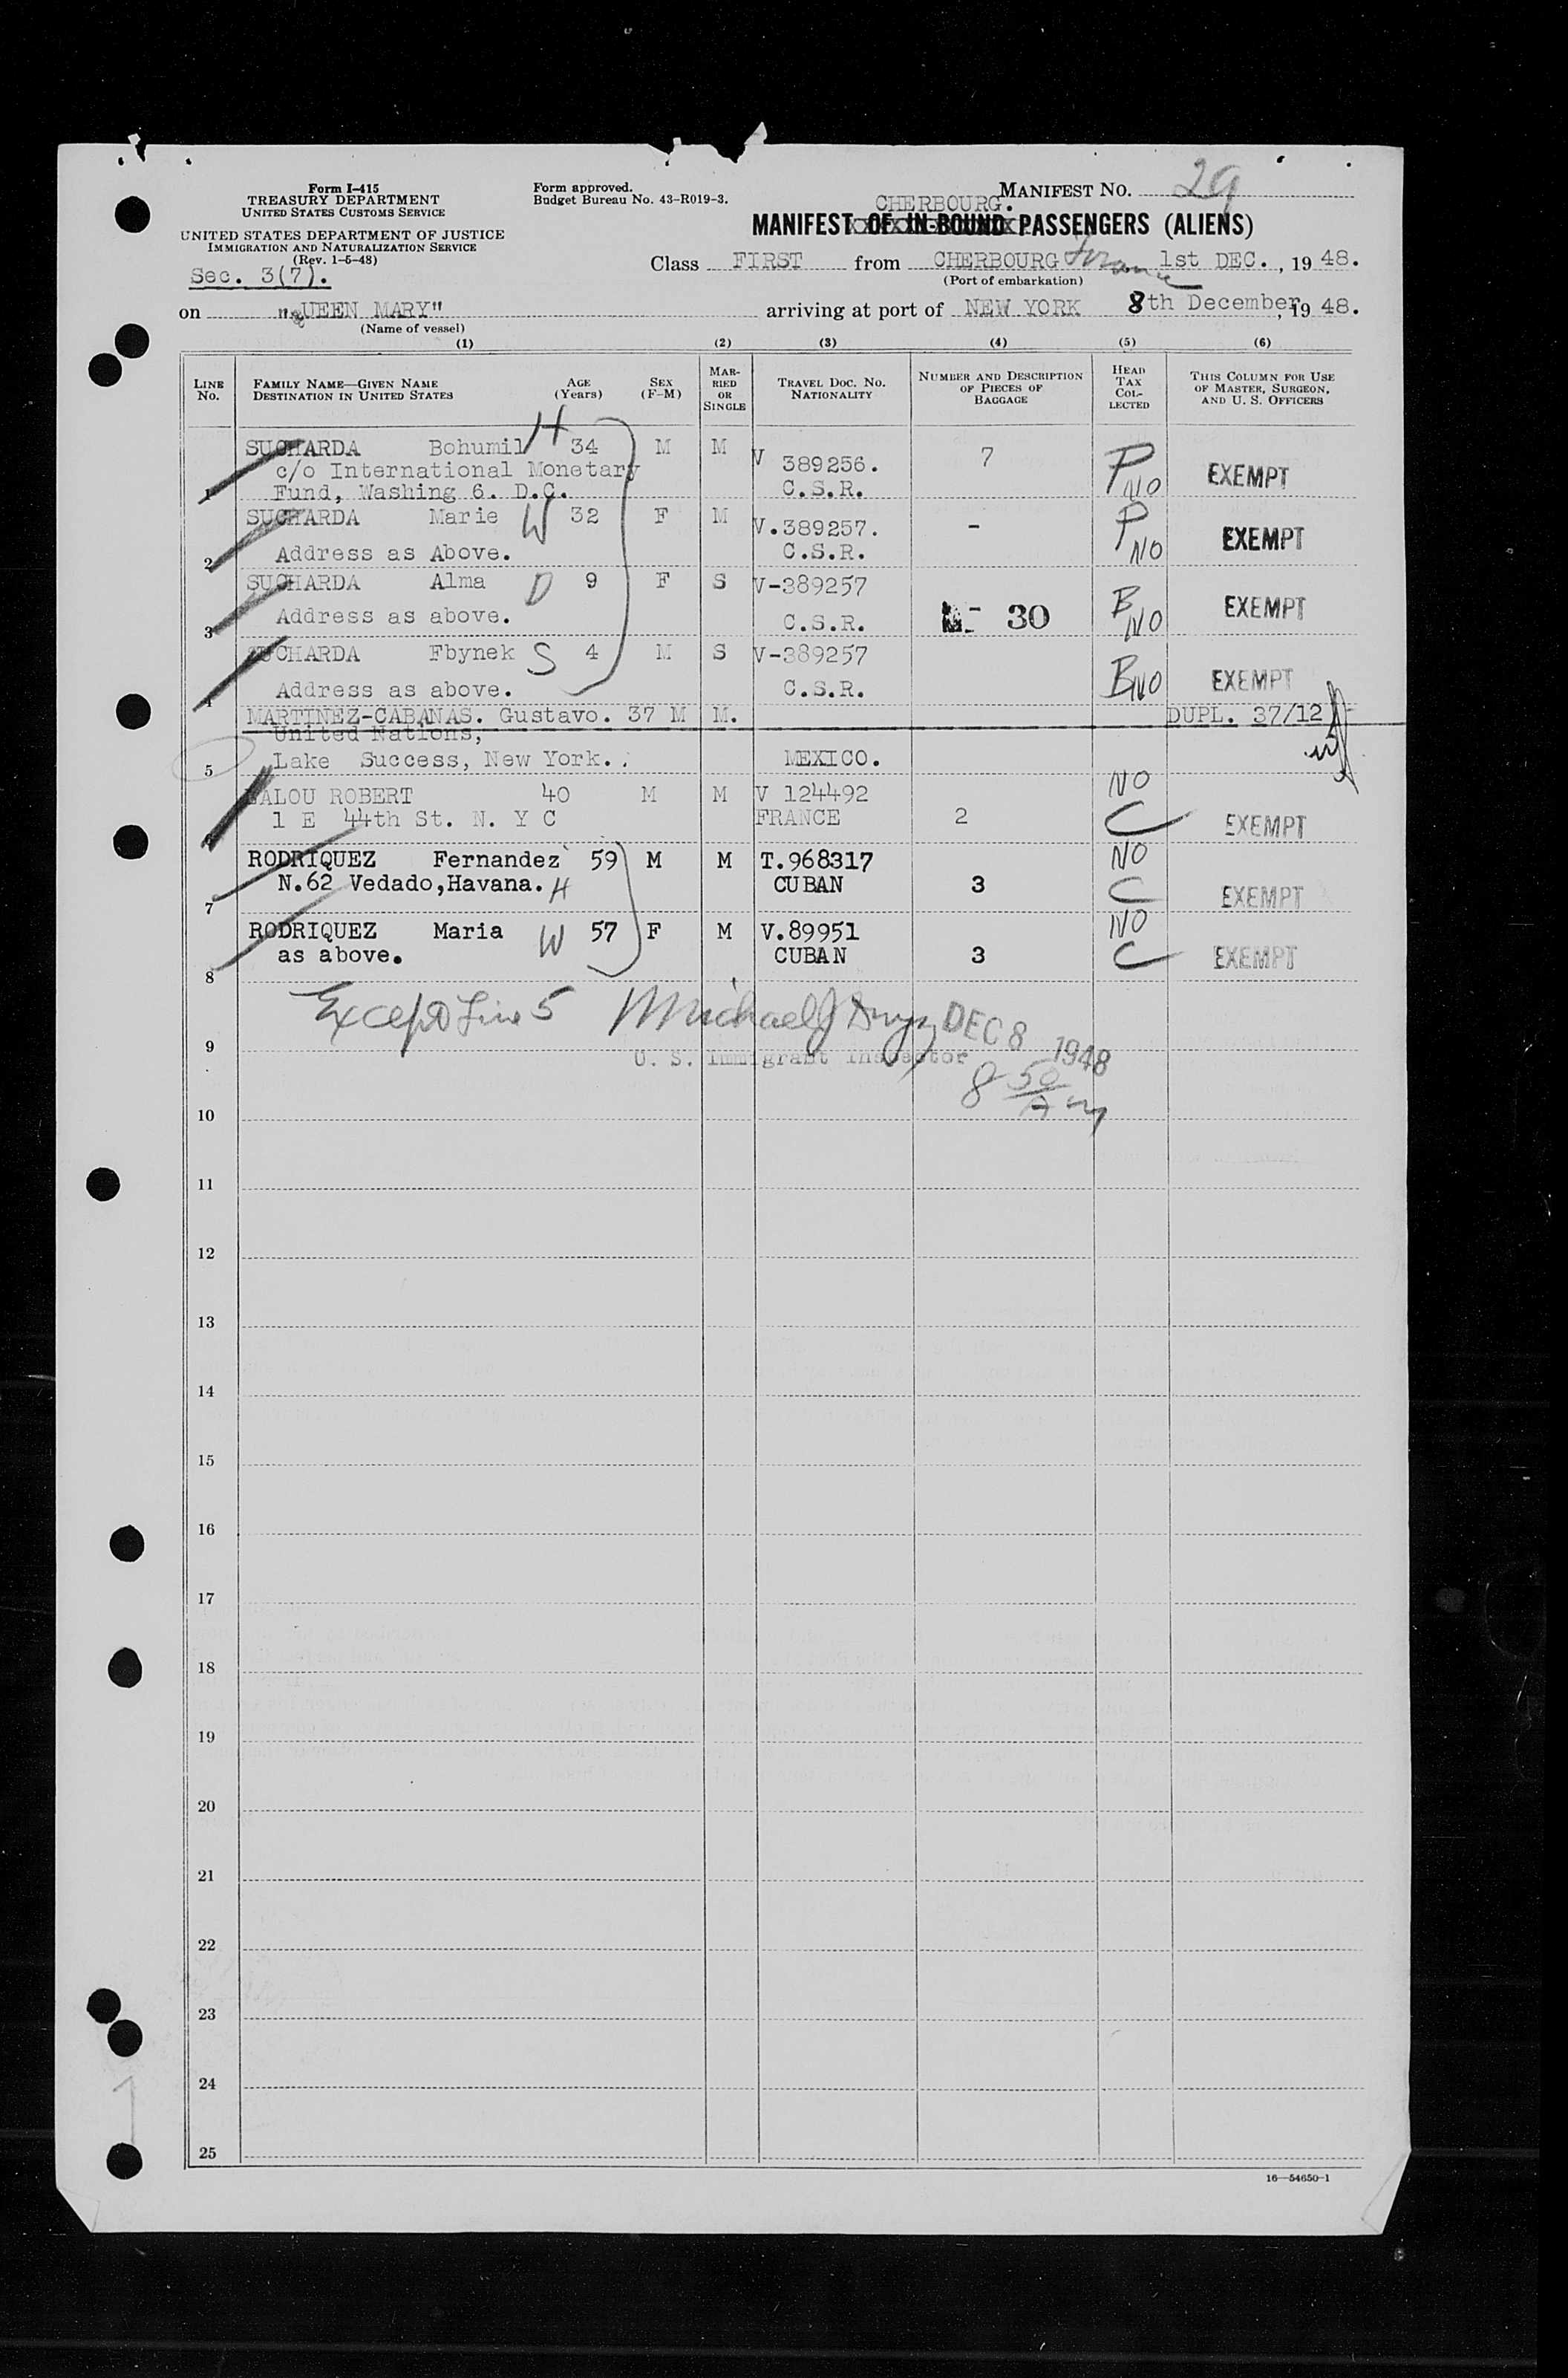 Form I-415
TREASURY DEPARTMENT
UNITED STATES CUSTOMS SERVICE
UNITED STATES DEPARTMENT OF JUSTICE
IMMIGRATION AND NATURALIZATION SERVICE
(Rev. 1-5-48)
Sec. 3(7).
Form approved.
Budget Bureau No. 43-R019-3.
MANIFEST NO. 29
CHERBOURG.
MANIFEST OF IN-BOUND PASSENGERS (ALIENS)
Class FIRST from CHERBOURG France 1st DEC., 19 48.
(Port of embarkation)
on "QUEEN MARY" arriving at port of NEW YORK 8th December, 19 48.
(Name of vessel)
(1) (2) (3) (4) (5) (6)
LINE No. FAMILY NAME—GIVEN NAME DESTINATION IN UNITED STATES AGE (Years) SEX (F-M) MARRIED OR SINGLE TRAVEL DOC. NO. NATIONALITY NUMBER AND DESCRIPTION OF PIECES OF BAGGAGE HEAD TAX COLLECTED THIS COLUMN FOR USE OF MASTER, SURGEON, AND U. S. OFFICERS
SUCHARDA Bohumil H 34 M M V 389256. 7 P NO EXEMPT
c/o International Monetary
1 Fund, Washing 6. D.C. C.S.R.
SUCHARDA Marie W 32 F M V.389257. - P NO EXEMPT
2 Address as Above. C.S.R.
SUCHARDA Alma D 9 F S V-389257 B NO EXEMPT
3 Address as above. C.S.R. 30
SUCHARDA Fbynek S 4 M S V-389257 B NO EXEMPT
4 Address as above. C.S.R.
MARTINEZ-CABANAS. Gustavo. 37 M M. DUPL. 37/12
United Nations,
5 Lake Success, New York. MEXICO.
JALOU ROBERT 40 M M V 124492 NO
6 1 E 44th St. N. Y C FRANCE 2 C EXEMPT
RODRIQUEZ Fernandez 59 M M T.968317 NO
7 N.62 Vedado,Havana. H CUBAN 3 C EXEMPT
RODRIQUEZ Maria W 57 F M V.89951 NO
8 as above. CUBAN 3 C EXEMPT
Except Line 5 Michael J DEC 8 1948
9 U. S. Immigrant Inspector
8 50 Am
10
11
12
13
14
15
16
17
18
19
20
21
22
23
24
25
16—54650-1